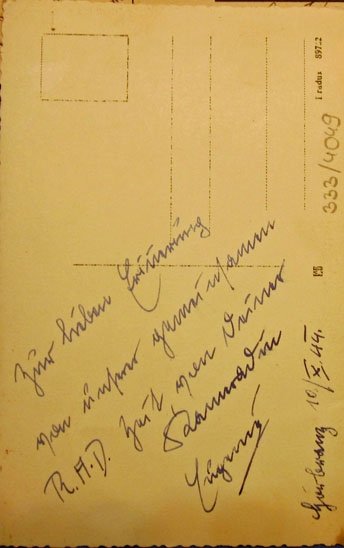 Zur lieben Erinnerung
von unsrer gemeinsamen
R.A.D. Zeit von Deiner
Kameradin
10/X.44.
333/4049